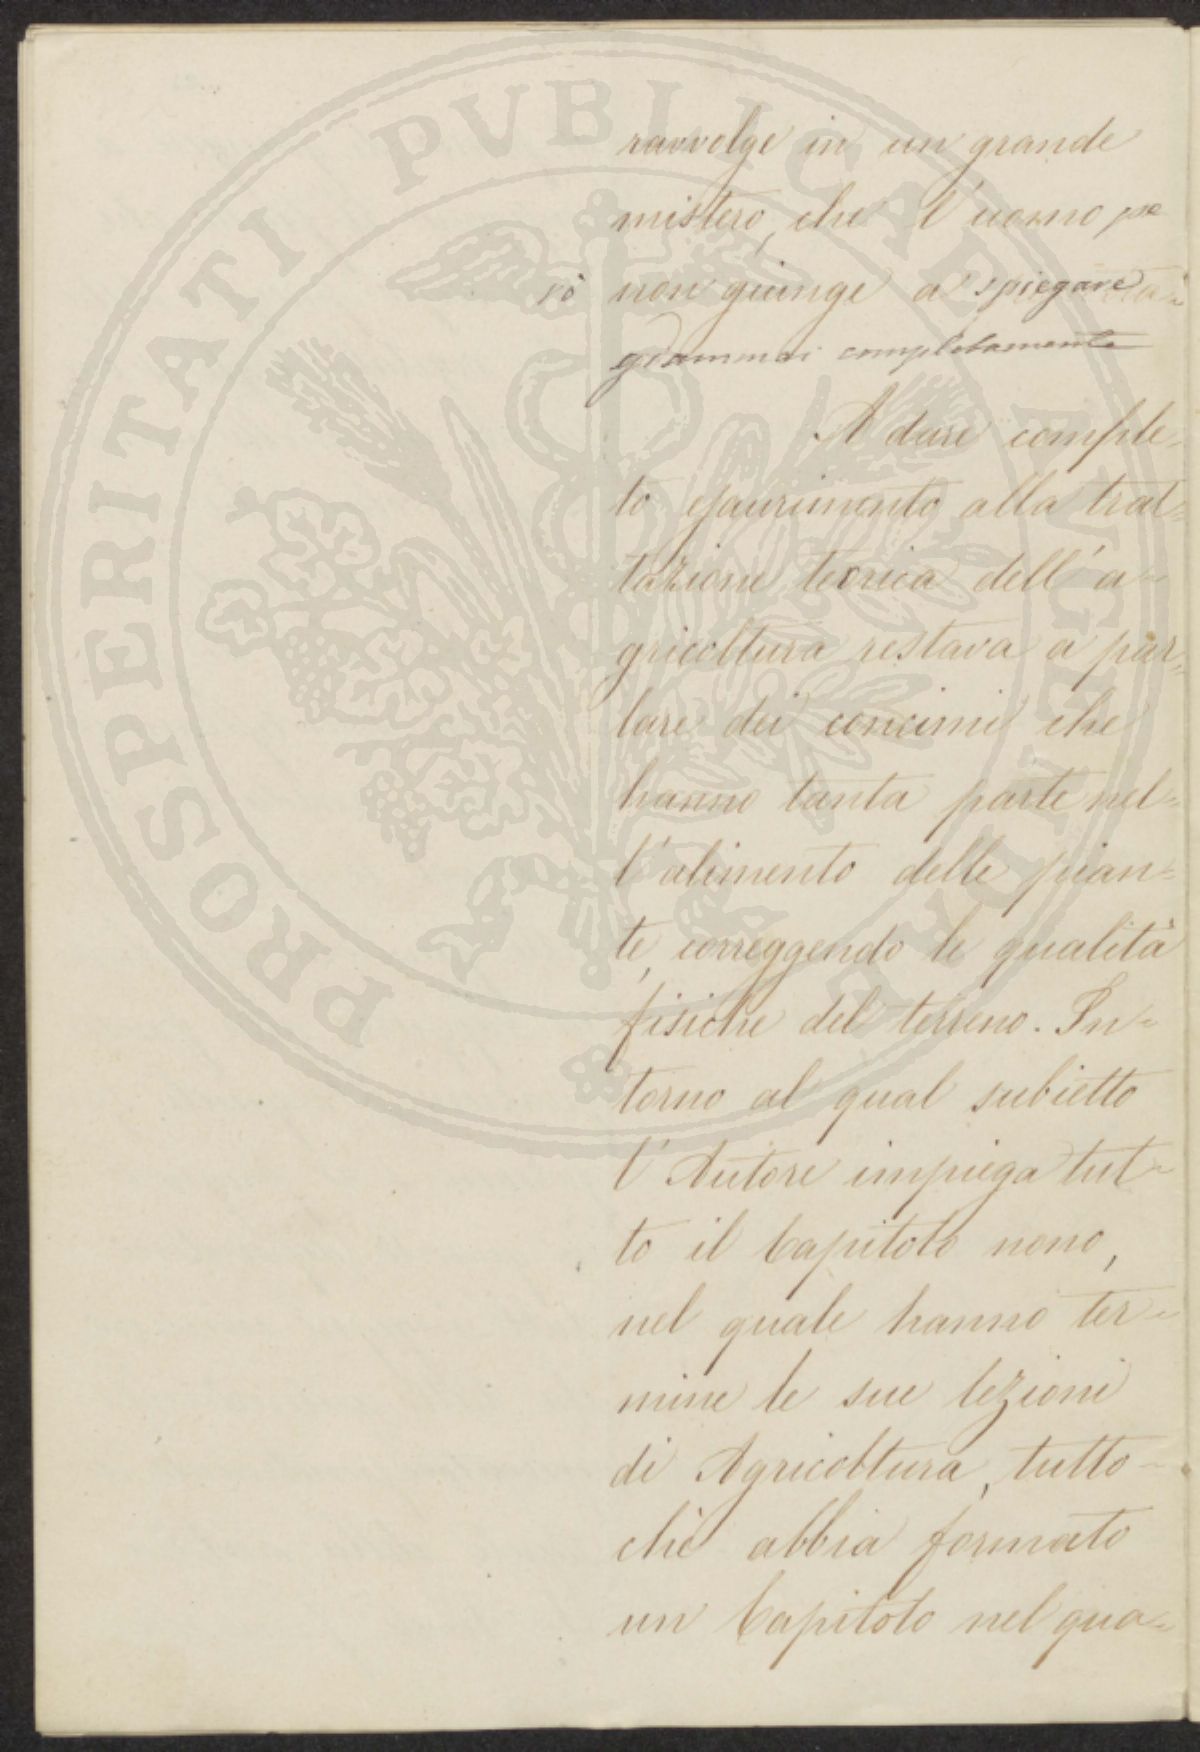 PROSPERITATI PUBLICAE AUGENDAE
ravvolge in un grande
mistero, che l'uomo pe
rò non giunge a spiegare
giammai completamente
A dare comple=
to esaurimento alla trat=
tazione teorica dell'a=
gricoltura restava a par=
lare dei concimi che
hanno tanta parte nel=
l'alimento delle pian=
te, correggendo le qualità
fisiche del terreno. In=
torno al qual subietto
l'Autore impiega tut=
to il Capitolo nono,
nel quale hanno ter=
mine le sue lezioni
di Agricoltura, tutto=
chè abbia formato
un Capitolo nel qua=